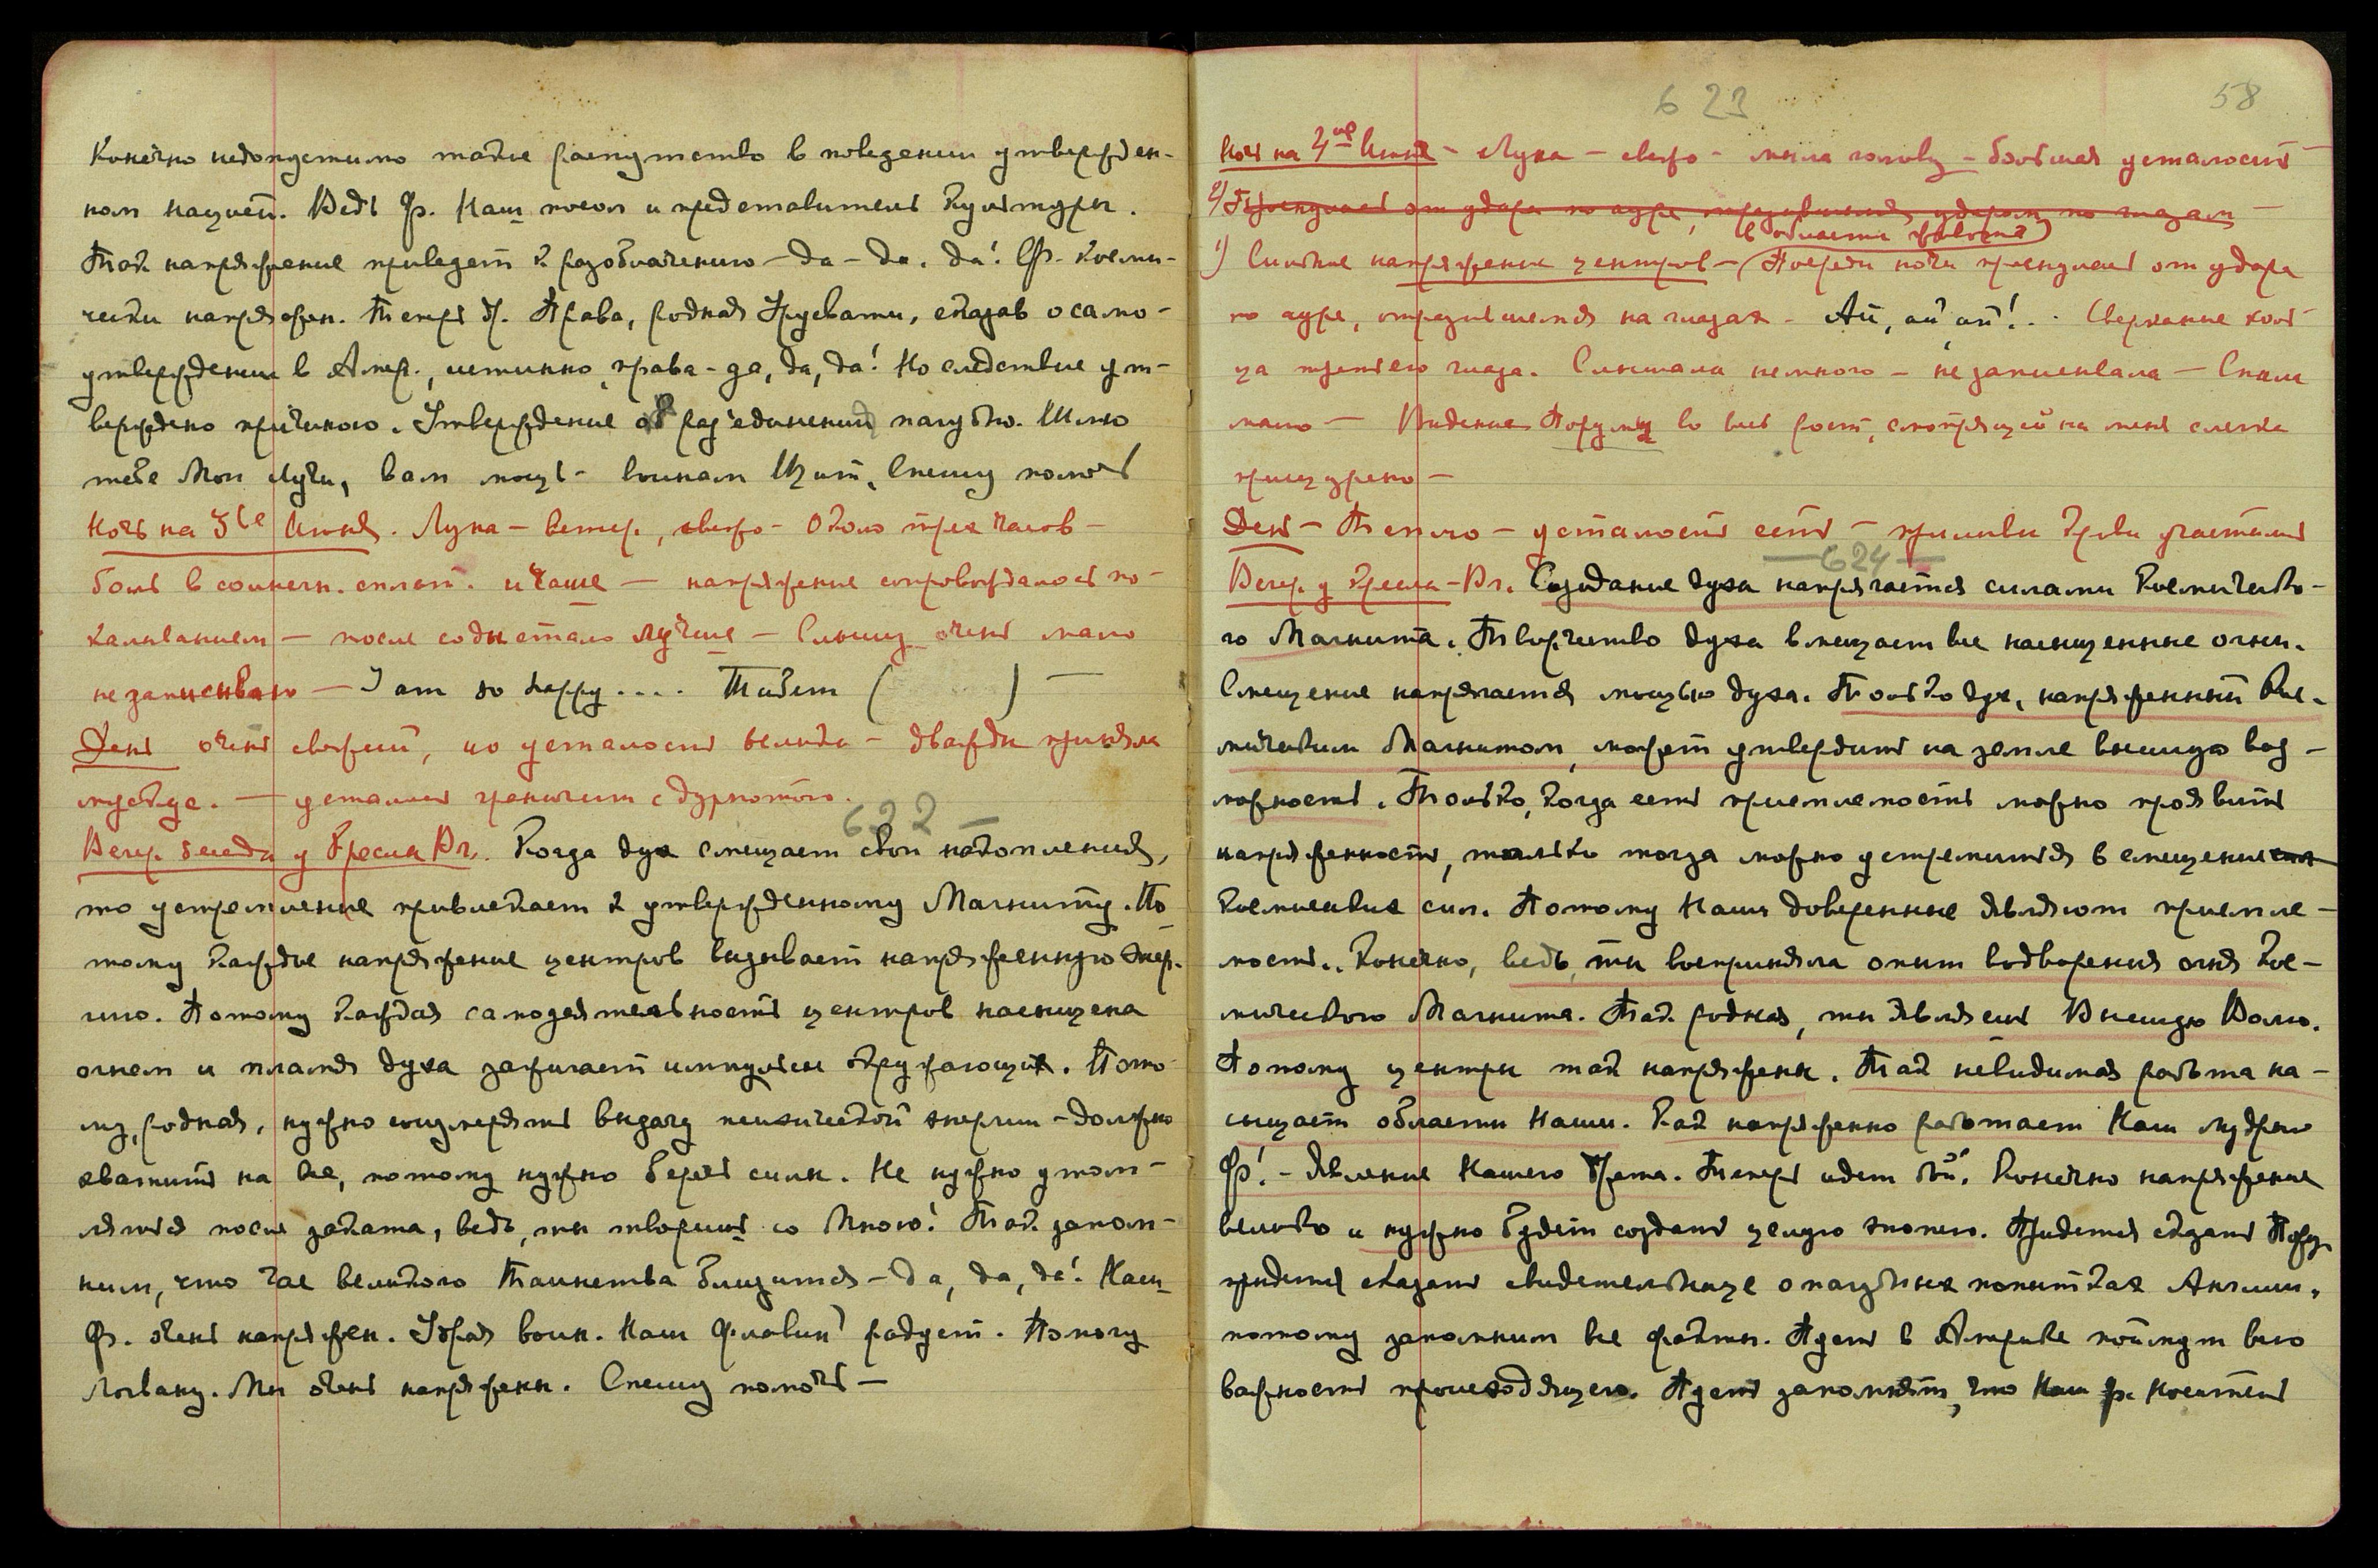 Конечно недопустимо такое распутство в поведении утвержден-
ном нацией. Ведь Ф. Наш посол и представитель Культуры.
Так напряжение приведет к разоблачению – да – да, да! Ф. косми-
чески напряжен. Теперь др. Права, родная Урусвати, сказав о само-
утверждении в Амер., истинно права – да, да, да! Но следствие ут-
верждено причиною. Утверждение раз'единений пагубно. Шлю
тебе Мои Лучи, вам мощь – воинам Щит, Спешу помочь
Ночь на 3ье Июня. Луна – ветер, свежо – Около трех часов –
боль в солнечн. сплет. и чаше – напряжение сопровождалось по-
калыванием – после соды стало лучше – Слышу очень мало
не записываю – I am so happy.... Тибет ( ) –
День очень свежий, но усталость велика – дважды приняла
мускус. – усталость граничит с дурнотою.
622 –
Вечер. беседа у Кресла Вл. Когда дух смещает свои накопления,
то устремление привлекает к утвержденному Магниту. По
тому каждое напряжение центров вызывает напряженную энер-
гию. Потому каждая самодеятельность центров насыщена
огнем и пламя духа зажигает импульсы окружающих. Пото-
му, родная, нужно соизмерять выдачу психической энергии – должно
хватить на все, потому нужно беречь силы. Не нужно утом-
ляться после заката, ведь, ты творишь со Мною! Так запом-
ним, что час великого Таинства близится – да, да, да! Наш
Ф. очень напряжен. Удрая воин. Наш Флавий радует. Помогу
Логвану. Мы очень напряжены. Спешу помочь –
623
58
Ночь на 4ую Июня – Луна – свежо – мыла голову – большая усталость –
2) Проснулась от удара по ауре, отразившемся ударом по глазам –
в области живота)
1) Сильные напряжения центров – (Посреди ночи проснулась от удара
по ауре, отразившемся на глазах – Ай, ай ай!.. Сверкание коль-
ца третьего глаза. Слышала немного – не записывала – Спала
мало – Видение Порумы во весь рост, смотрящей на меня слегка
прищурено –
День – Тепло – усталость есть – приливы крови участились
– 624 –
Вечер. у Кресла – Вл. Созидание духа напрягается силами Космическо-
го Магнита. Творчество духа вмещает все насыщенные огни.
Смещение напрягается мощью духа. Только дух, напряженный Кос-
мическим Магнитом, может утвердить на земле высшую воз-
можность. Только, когда есть приемлемость можно проявить
напряженность, только тогда можно устремиться в смещение
космических сил. Потому Наши доверенные являют приемле-
мость.. Конечно, ведь, ты восприняла опыт водворения огня Кос-
мического Магнита. Так родная, ты являешь Высшую Волю.
Потому центры так напряжены. Так невидимая работа на-
сыщает области Наши. Как напряженно работает Наш мудрый
Ф! – Явление Нашего Брата. Теперь идет бой. Конечно напряжение
велико и нужно будет создать целую эпопею. Придется сказать Пору,
придется сказать свидетельнице о пагубных попытках Англии,
потому запомним все факты. Пусть в Америке поймут всю
важность происходящего. Пусть запомнят, что Наш ф. Носитель